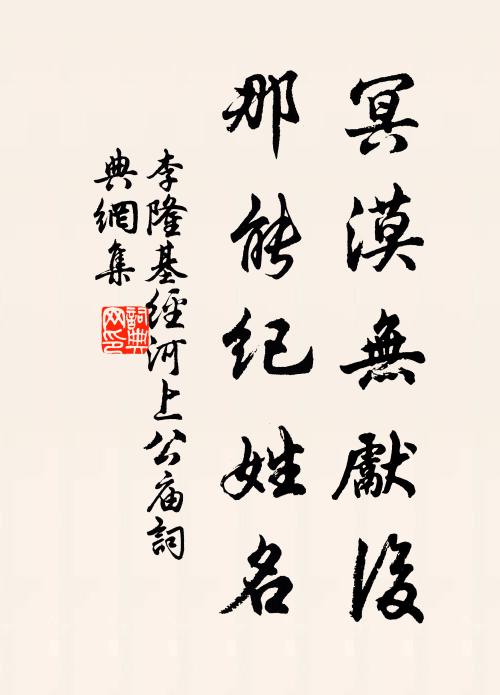 冥漠無獻後
那能紀姓名
李隆基經河上公庙詞
典網集
詞典
网印